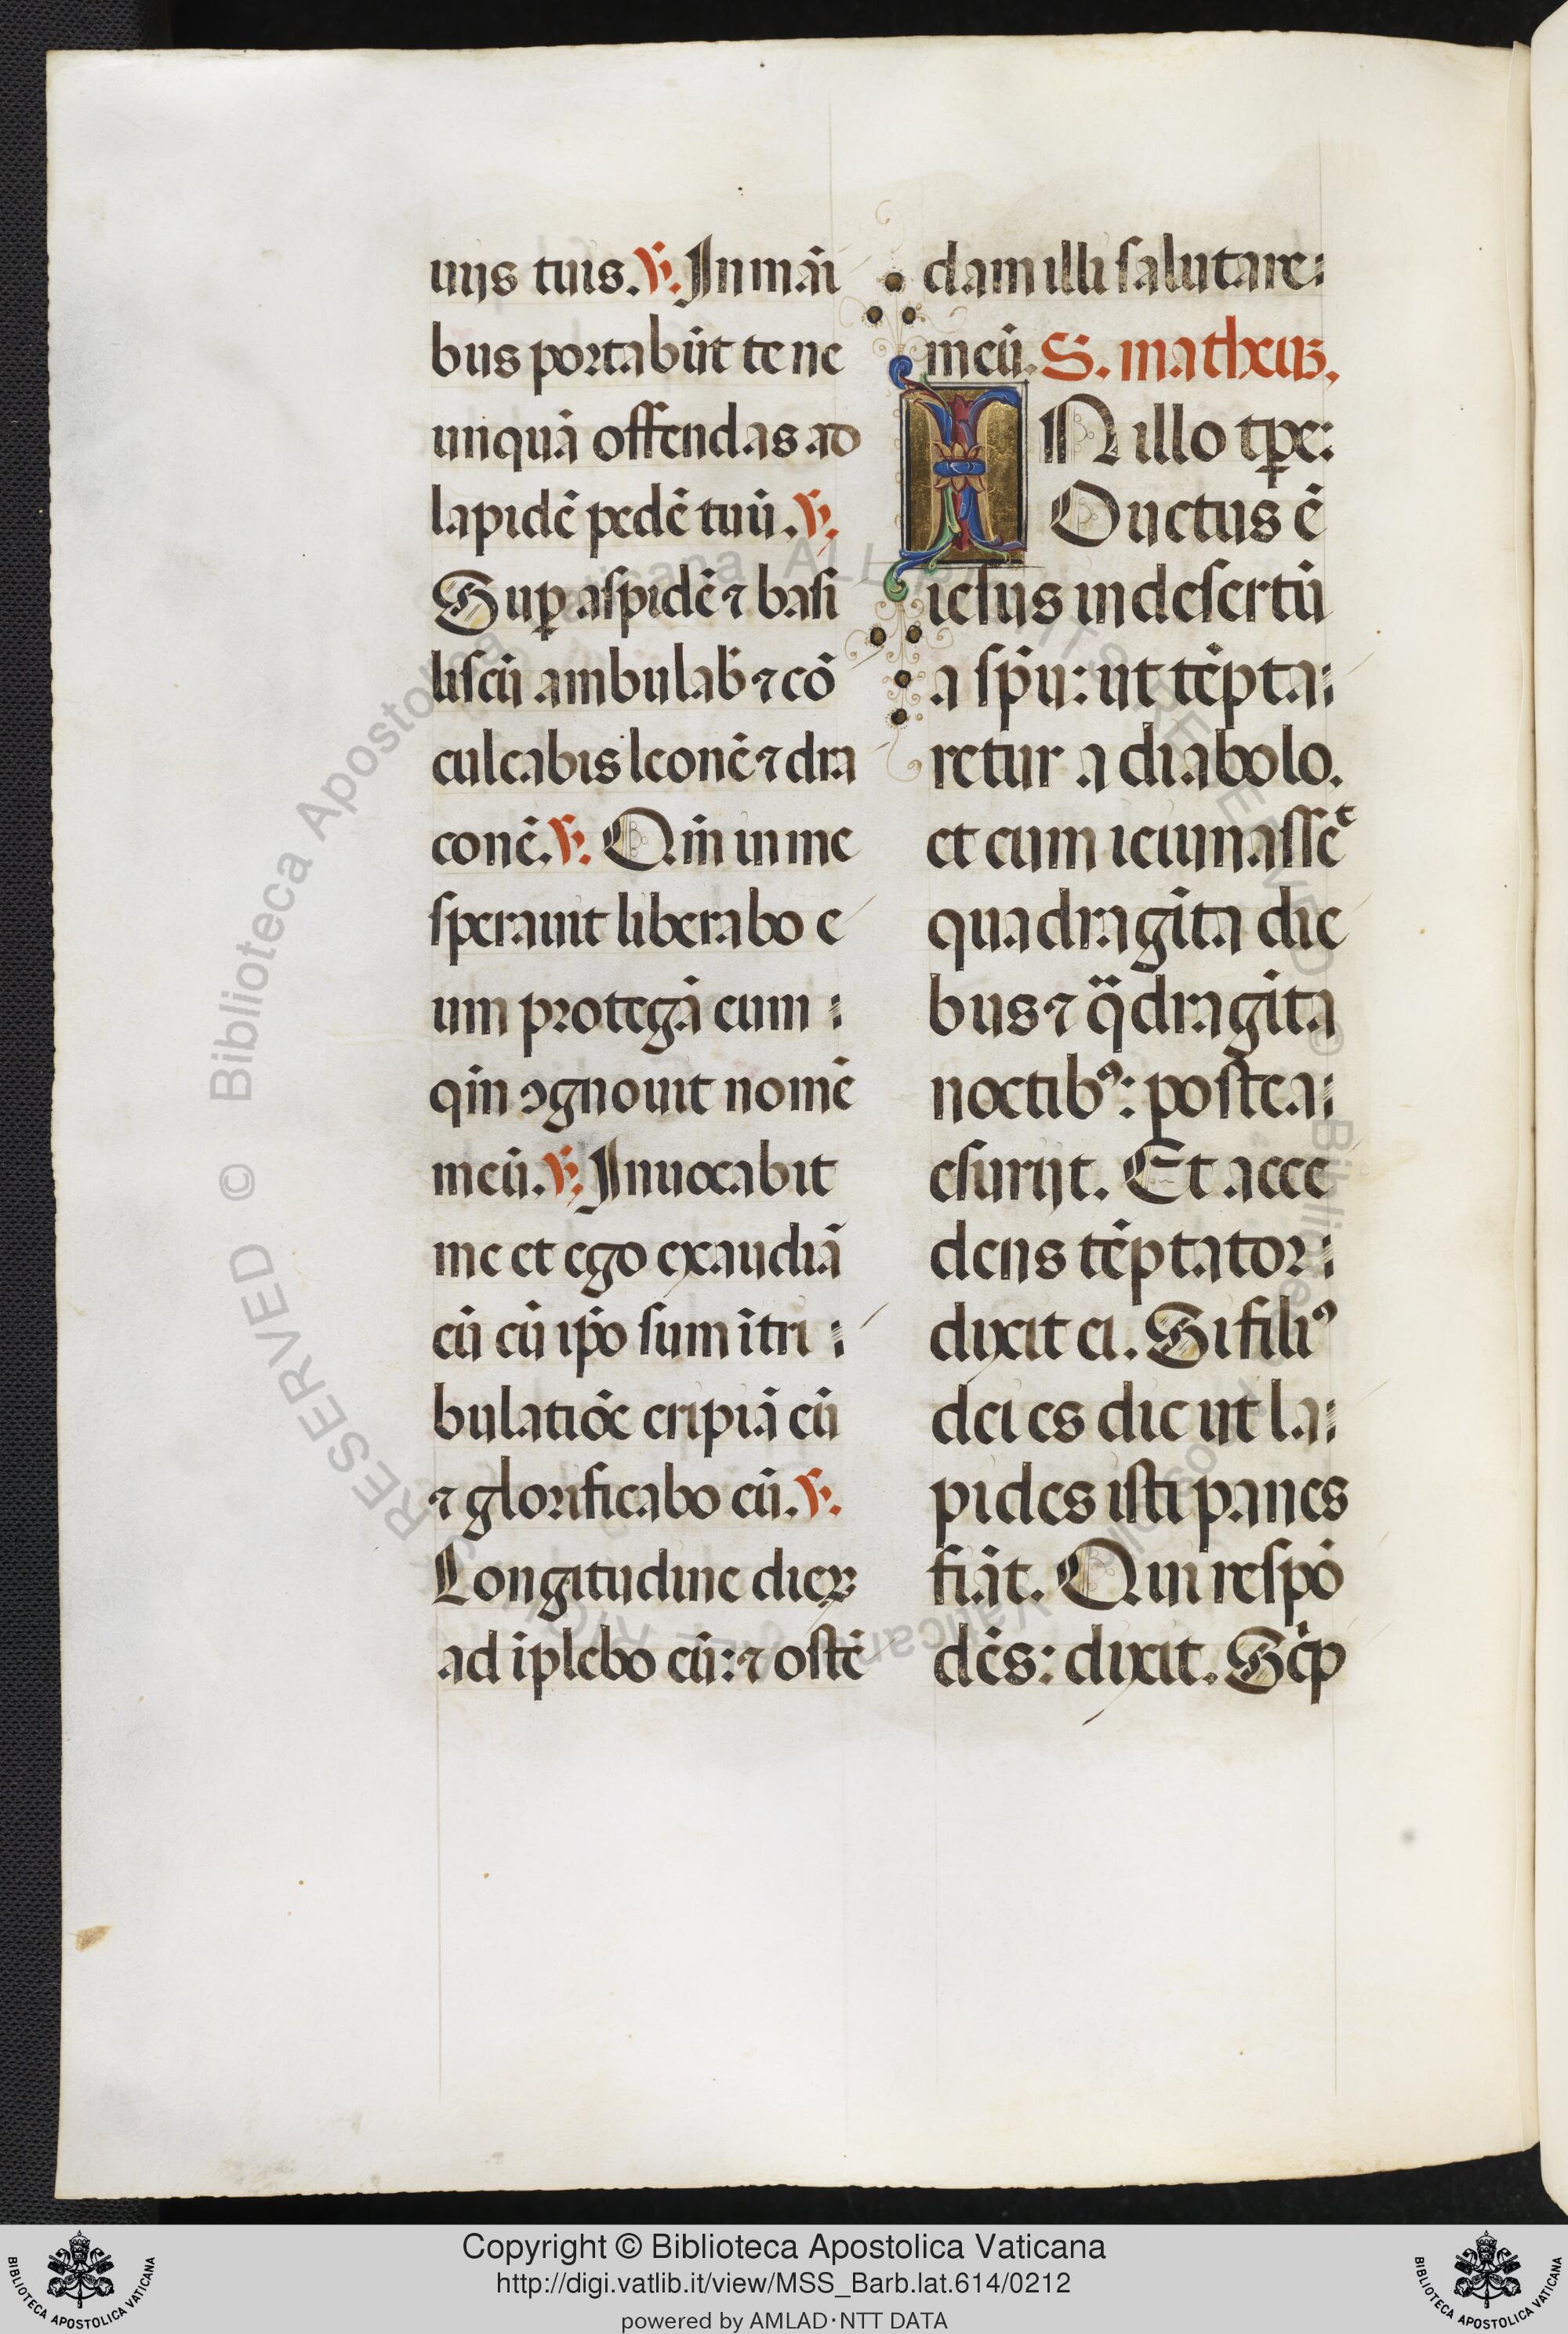 uijs tuis. ℣. In māi
bus portabūt te ne
unquā offendas ad
lapidē pedē tuū. ℣.
Suꝑ aspidē ⁊ basi
liscū ambulab̄ ⁊ cō
culcabis leonē ⁊ dra
conē. ℣. Qm̄ in me
sperauit liberabo e
um protegā eum :
qm̄ ꝯgnouit nomē
meū. ℣. Inuocabit
me et ego exaudiā
eū cū ip̄o sum ī tri :
bulatiōe eripiā eū
⁊ glorificabo eū. ℣.
Longitudine dieꝝ
adīplebo eū: ⁊ ostē
dam illi salutare:
meū. S. matheus.
IN illo tp̄e:
Ductus ē
iesus in desertū
a sp̄u: ut tēpta:
retur a diabolo.
et cum ieiunassēt
quadragīta die
bus ⁊ q̈dragīta
noctibꝰ: postea:
esurijt. Et acce
dens tēptator:
dixit ei. Si filiꝰ
dei es dic ut la:
pides isti panes
fiāt. Qui respō
dēs: dixit. Sc̄p
Copyright © Biblioteca Apostolica Vaticana
http://digi.vatlib.it/view/MSS_Barb.lat.614/0212
powered by AMLAD·NTT DATA
BIBLIOTECA APOSTOLICA VATICANA
BIBLIOTECA APOSTOLICA VATICANA